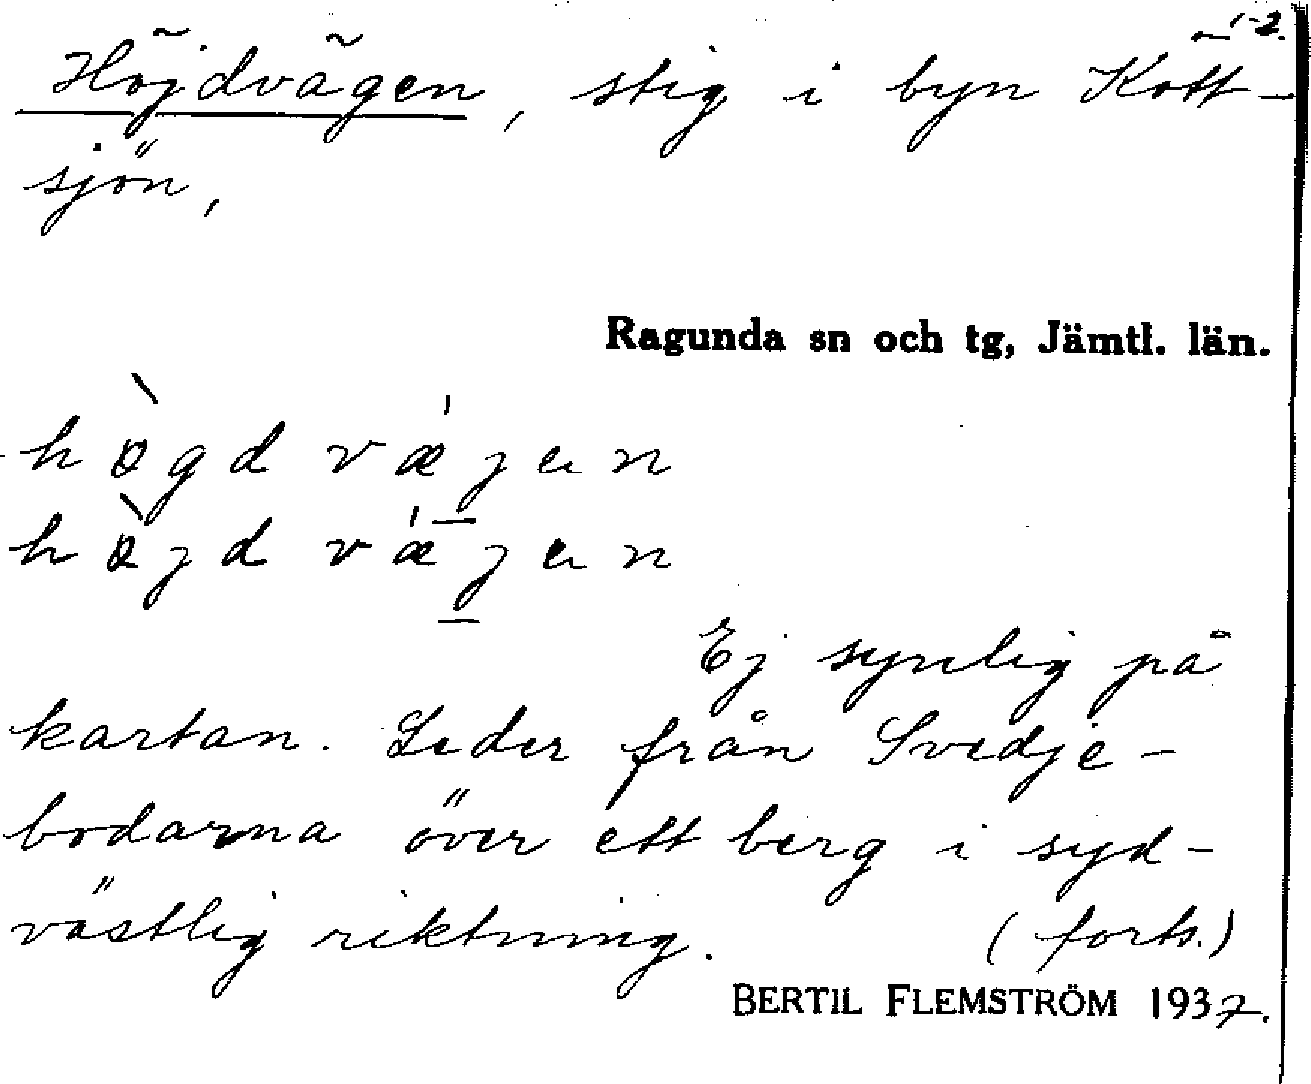 1-2.
Höjdvägen, stig i byn Kött-
sjön,
Ragunda sn och tg, Jämtl. län.
hògd væ´jen
hòjd væ´jen
Ej synlig på
kartan. Leder från Svedje-
bodarna över ett berg i syd-
västlig riktning. (forts.)
BERTIL FLEMSTRÖM 1937.